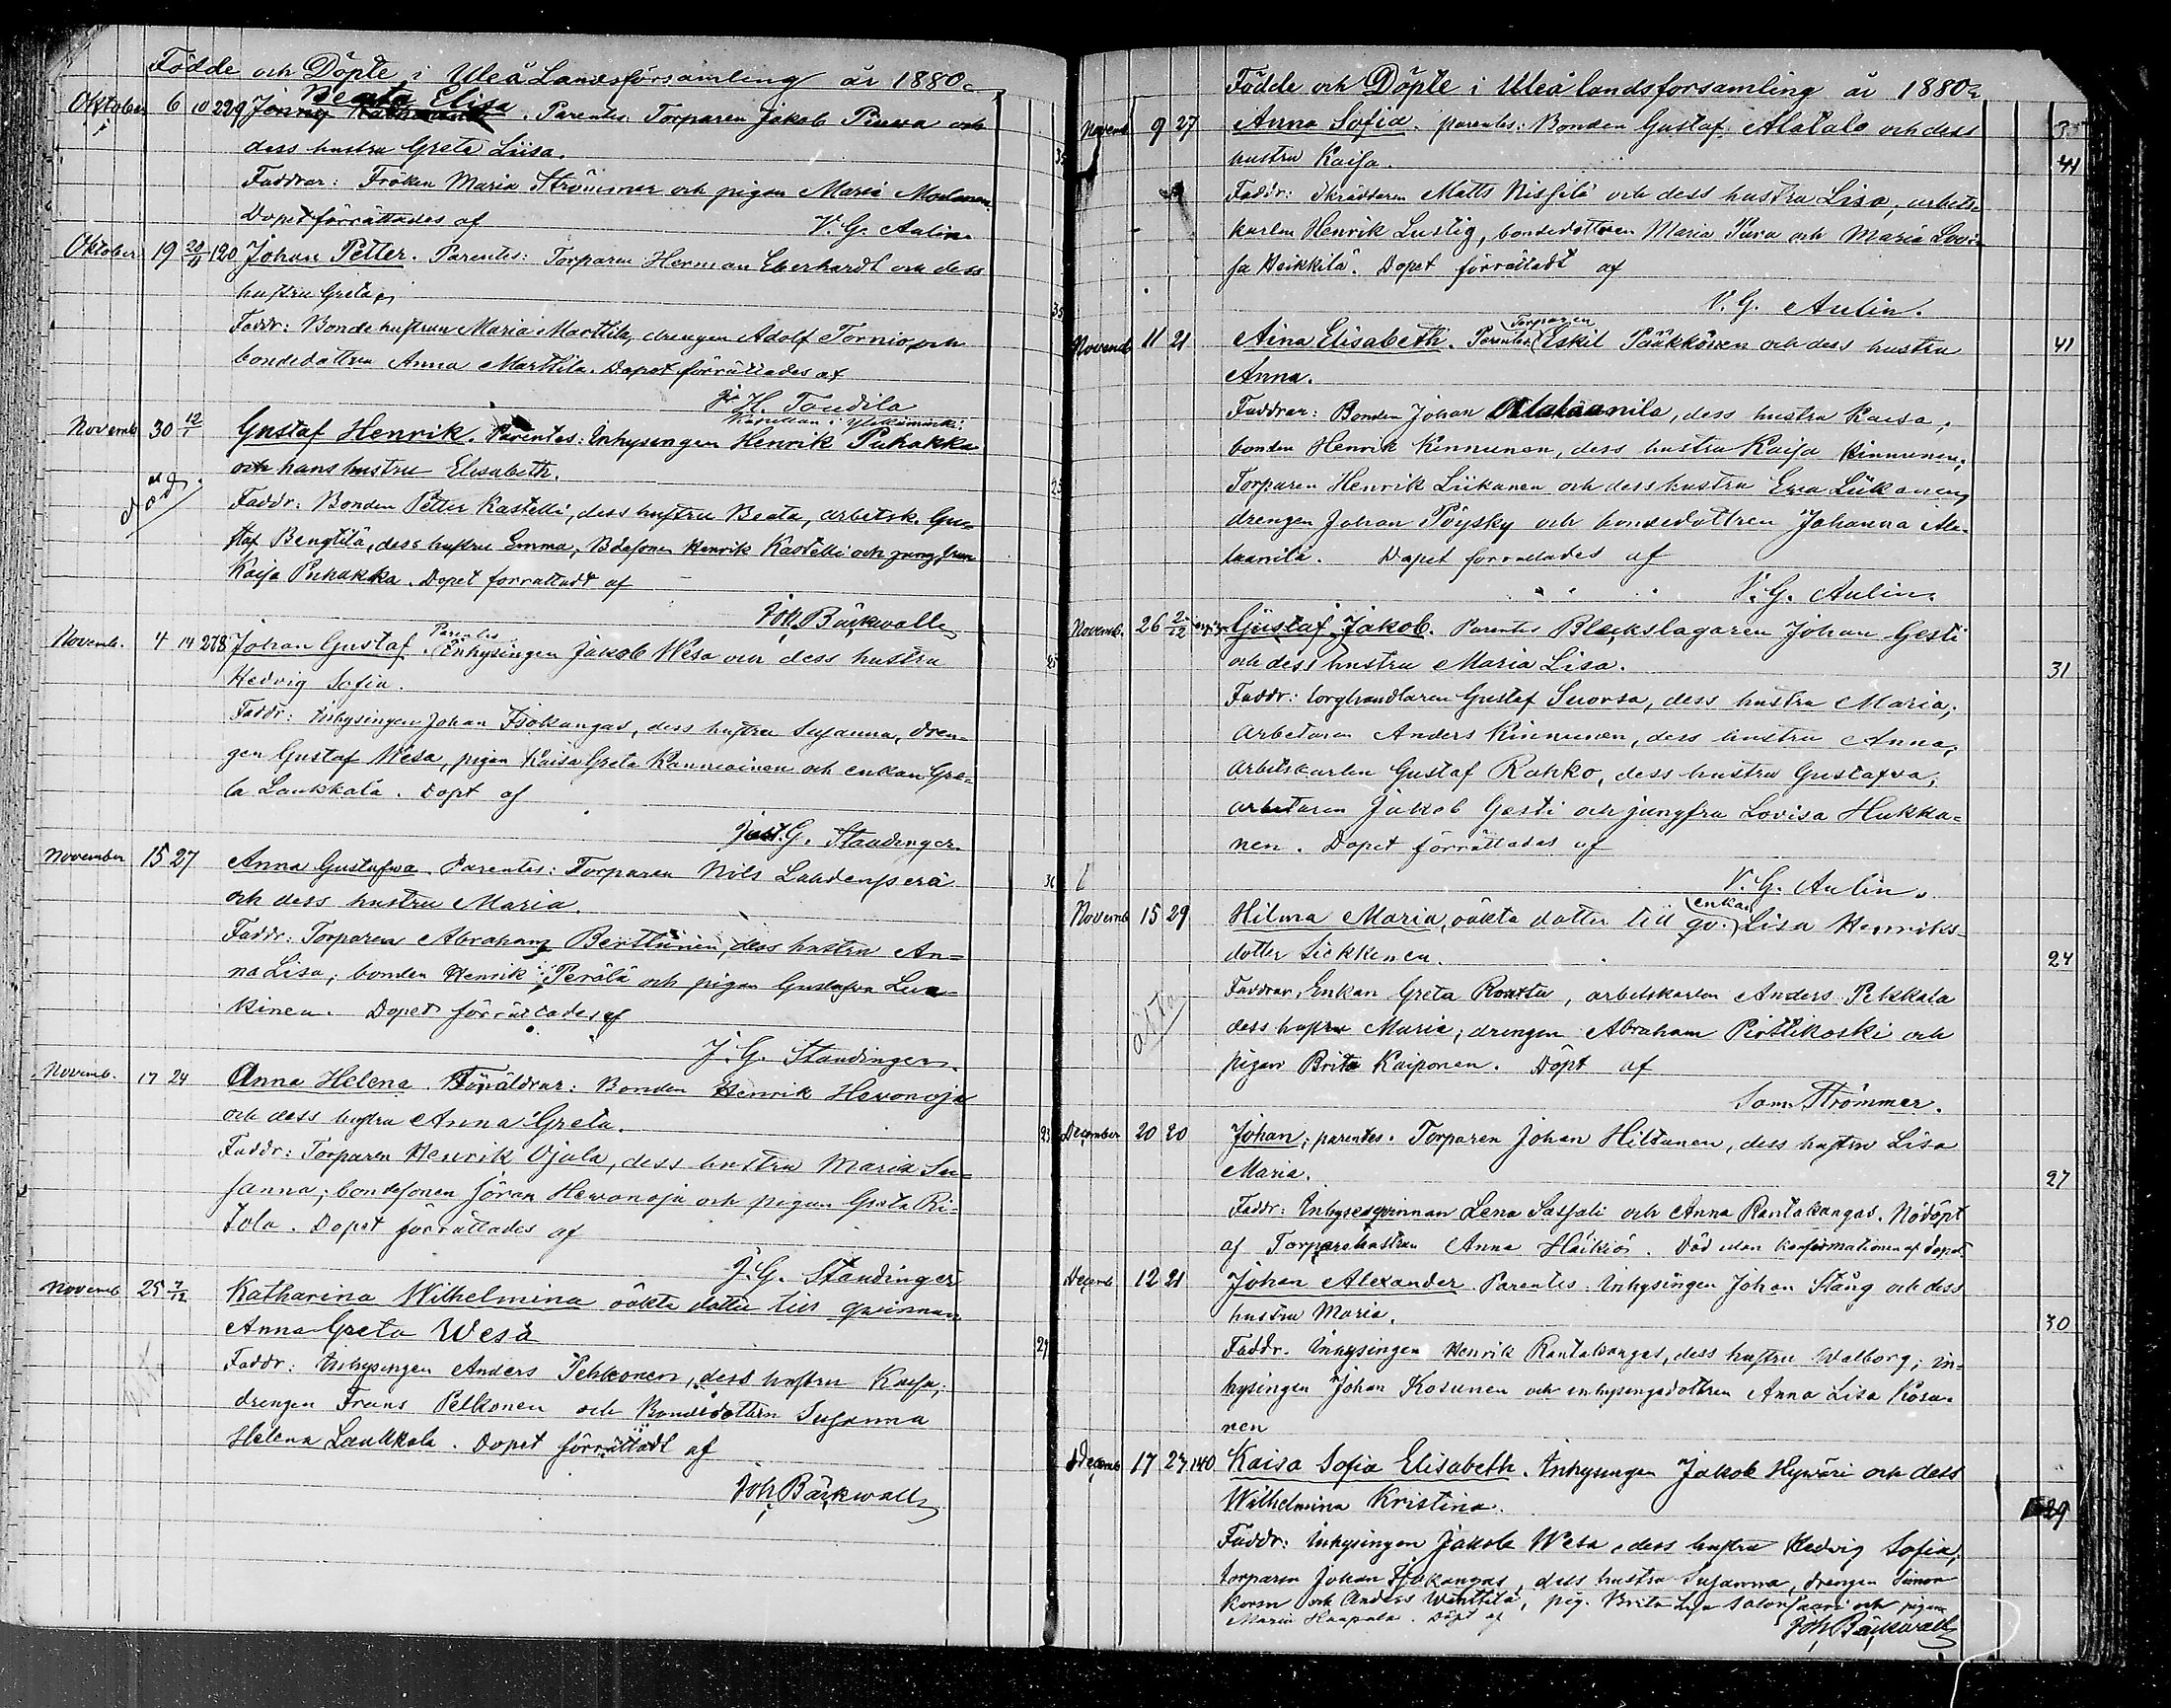 Födde och Döpte i Uleå Landsförsamling år 1880
Beata Elisa
Oktober 6 10 229 Jenny. Parentes Torparen Jakob Piuva och
dess hustru Greta Liisa. 35
Faddrar: Fröken Maria Strömmer och pigan Maria
Dopet förrättades af V. G. Aulin
Oktober 19 20/11 120 Johan Petter. Parentes: Torparen Herman Eberhardt och dess
hustru Greta 35
Faddr: Bondehustrun Maria Marttila, drengen Adolf Tornio och
bondedottren Anna Marttila. Dopet förrättades af
H. Toudila
Kapellan i Ylikiiminki
Novemb 30 12/1 Gustaf Henrik. Parentes: Inhysingen Henrik Puhakka
och hans hustru Elisabeth.
död 25
Faddr: Bonden Petter Kastelli, dess hustru Beata, arbetsk. Gu-
staf Bengtilä, dess hustru Emma, Bdesonen Henrik Kastelli och jungfrun
Kaisa Puhakka. Dopet förrättadt af
Joh. Bäckwall
Novemb. 4 14 278 Johan Gustaf. Parentes Inhysingen Jakob Wesa och dess hustru 25
Hedvig Sofia.
Faddr: Inhysingen Johan Isokangas, dess hustru Susanna, dren-
gen Gustaf Wesa, pigan Kaisa Greta Kanniainen och enkan Gre-
ta Laukkala. Döpt af
Just. G. Staudinger.
November 15 27 Anna Gustafva. Parentes: Torparen Nils Lahdenperä
och dess hustru Maria.
Faddr: Torparen Abraham Berttunen, dess hustru An-
na Lisa; bonden Henrik Perälä och pigan Gustafva Lea-
kinen. Dopet förrättades af
J. G. Staudinger.
Novemb. 17 24 Anna Helena. Föräldrar: Bonden Henrik Hevonoja
och dess hustru Anna Greta. 23
Faddr: Torparen Henrik Ojala, dess hustru Maria Su-
sanna; bondesonen Jöran Hewonoja och pigan Greta Ri-
tola. Dopet förrättades af
J. G. Staudinger
Novemb 25 7/12 Katharina Wilhelmina oäkta dotter till qvinnan
Anna Greta Wesa 29
Faddr: Inhysingen Anders Pehkonen, dess hustru Kaisa,
drengen Frans Pelkonen och Bondedottren Susanna
Helena Laukkala. Dopet förrättadt af
Joh. Bäckwall
Födde och Döpte i Uleå landsforsamling år 1880
Novemb 9 27 Anna Sofia. parentes: Bonden Gustaf Alatalo och dess 35
hustru Kaisa. 41
Faddr: Skräddaren Matts Nissilä och dess hustru Lisa, arbets-
karlen Henrik Lustig, bondedottren Maria Piuva och Maria Lovi-
sa Heikkilä. Dopet förrättadt af
V. G. Aulin.
Novemb 11 21 Aina Elisabeth. Parentes Torparen Eskil Pääkkönen och dess hustru 41
Anna.
Faddrar: Bonden Johan Alalaanila, dess hustru Kaisa,
bonden Henrik Kinnunen, dess hustru Kaisa Kinnunen,
Torparen Henrik Liikanen och dess hustru Eva Liikanen,
drengen Johan Pöysky och bondedottren Johanna Ala-
laanila. Dopet förrättades af
V. G. Aulin.
Novemb. 26 2/12 Gustaf Jakob. Parentes Bleckslagaren Johan Gesti
och dess hustru Maria Lisa. 31
Faddr: torghandlaren Gustaf Suorsa, dess hustru Maria,
Arbetaren Anders Kinnunen, dess hustru Anna,
Arbetskarlen Gustaf Rahko, dess hustru Gustafva,
arbetaren Jakob Gesti och jungfru Lovisa Hukka-
nen. Dopet förrättades af
V. G. Aulin.
Novemb 15 29 Hilma Maria, oäkta dotter till enkan qv. Lisa Henriks-
dotter Siekkinen. 24
Faddrar, Enkan Greta Routu, arbetskarlen Anders Pekkala
dess hustru Maria; drengen Abraham Pirttikoski och
pigan Brita Kaiponen. Döpt af
oäkta
Sam. Strömmer.
December 20 20 Johan; parentes. Torparen Johan Hiltunen, dess hustru Lisa
Maria. 27
Faddr: Inhysesqvinnan Lena Sassali och Anna Rantakangas. Nöddöpt
af Torparehustrun Anna Häikiö. Död utan konfirmationen af dopet.
Decemb 12 21 Johan Alexander Parentes. Inhysingen Johan Stång och dess
hustru Maria. 30
Faddr. Inhysingen Henrik Rantakangas, dess hustru Walborg; in-
hysingen Johan Kosunen och inhysingsdottren Anna Lisa Kosu-
nen
Decemb 17 27 140 Kaisa Sofia Elisabeth. Inhysingen Jakob Hywäri och dess
Wilhelmina Kristina. 29
Faddr: Inhysingen Jakob Wesa, dess hustru Hedvig Sofia,
torparen Johan Isokangas, dess hustru Susanna, drengen Simon
och Anders Wänttilä, pig. Brita Lisa och pigan
Maria Haapala. Döpt af Joh. Bäckwall